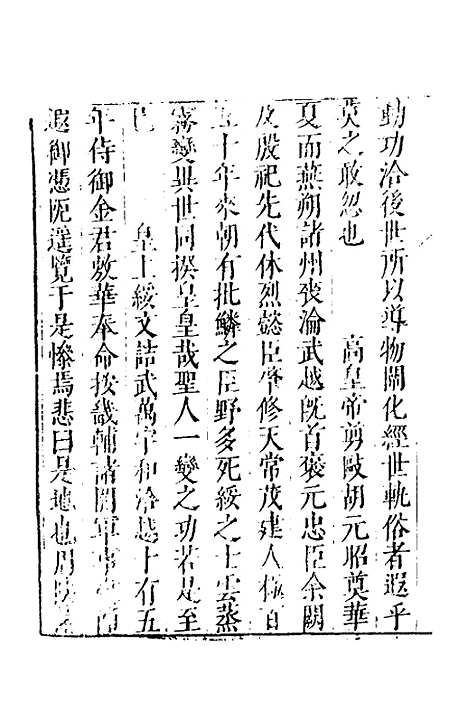 勳功洽後世所以導物闡化經世軌俗者遐乎
莫之敢忽也 高皇帝剪敺胡元昭奠華
夏而燕朔諸州喪淪武越旣首褒元忠臣余闕
及殷祀先代休烈懿臣肇修天常茂建人極百
五十年來朝有批鱗之臣野多死綏之士雲蒸
霧變異世同揆皇皇哉聖人一變之功若是至
已 皇上綏文詰武萬宇和洽越十有五
年侍御金君敫華奉命按畿輔諸關軍事
遐御憑阨遐覽于是慘焉悲曰是地也